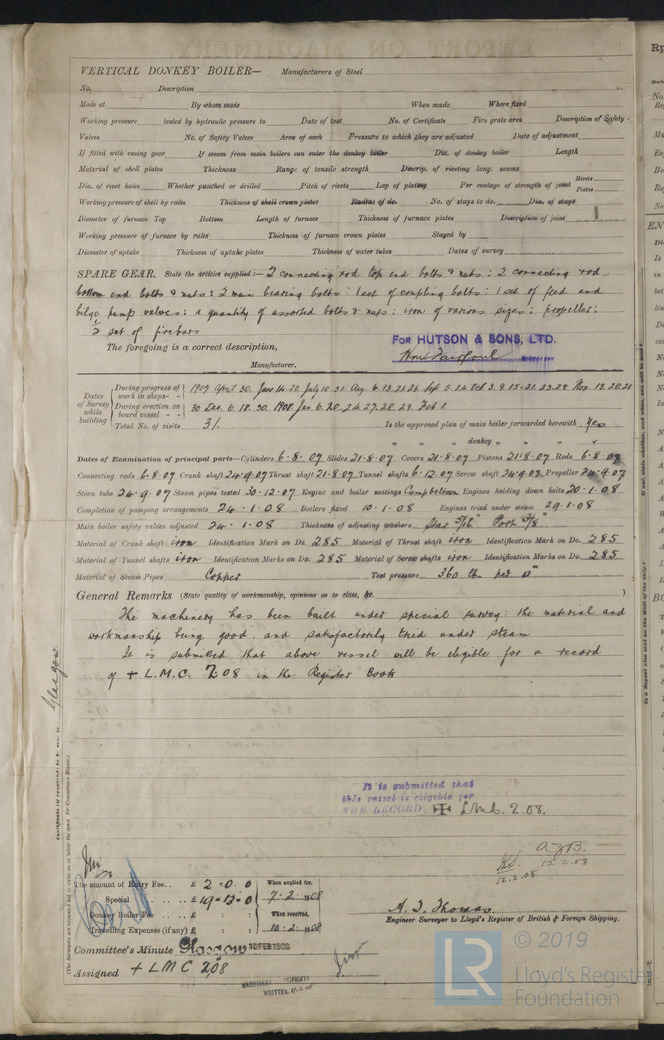 VERTICAL DONKEY BOILER— Manufacturers of Steel
No. Description
Made at By whom made When made Where fixed
Working pressure tested by hydraulic pressure to Date of test No. of Certificate Fire grate area Description of Safety
Valves No. of Safety Valves Area of each Pressure to which they are adjusted Date of adjustment
If fitted with easing gear If steam from main boilers can enter the donkey boiler Dia. of donkey boiler Length
Material of shell plates Thickness Range of tensile strength Descrip. of riveting long. seams
Dia. of rivet holes Whether punched or drilled Pitch of rivets Lap of plating Per centage of strength of joint Rivets Plates
Working pressure of shell by rules Thickness of shell crown plates Radius of do. No. of stays to do. Dia. of stays
Diameter of furnace Top Bottom Length of furnace Thickness of furnace plates Description of joint
Working pressure of furnace by rules Thickness of furnace crown plates Stayed by
Diameter of uptake Thickness of uptake plates Thickness of water tubes Dates of survey
SPARE GEAR. State the articles supplied:— 2 connecting rod top end bolts & nuts: 2 connecting rod
bottom end bolts & nuts: 2 main bearing bolts: 1 set of coupling bolts: 1 set of feed and
bilge pump valves: a quantity of assorted bolts & nuts: iron of various sizes: propeller:
½ set of firebars
The foregoing is a correct description,
FOR HUTSON & SONS, LTD.
Manufacturer.
Dates of Survey while building
During progress of work in shops- - 1907 April 30. June 14. 20. July 10. 31. Aug 6. 13. 21. 26. Sep 5. 24. Oct 3. 9. 15. 21. 23. 29. Nov 13. 20. 21
During erection on board vessel - - 30 Dec. 6. 18. 30. 1908 Jan 6. 20. 24. 27. 28. 29. Feb 1.
Total No. of visits 31. Is the approved plan of main boiler forwarded herewith Yes
" " donkey " " "
Dates of Examination of principal parts—Cylinders 6.8.07 Slides 21.8.07 Covers 21.8.07 Pistons 21.8.07 Rods 6.8.07
Connecting rods 6.8.07 Crank shaft 24.9.07 Thrust shaft 21.8.07 Tunnel shafts 6.12.07 Screw shaft 24.9.07 Propeller 24.9.07
Stern tube 24.9.07 Steam pipes tested 30.12.07 Engine and boiler seatings Campbeltown Engines holding down bolts 20.1.08
Completion of pumping arrangements 24.1.08 Boilers fixed 10.1.08 Engines tried under steam 29.1.08
Main boiler safety valves adjusted 24.1.08 Thickness of adjusting washers Port 3/8"
Material of Crank shaft iron Identification Mark on Do. 285 Material of Thrust shaft iron Identification Mark on Do. 285
Material of Tunnel shafts iron Identification Marks on Do. 285 Material of Screw shafts iron Identification Marks on Do. 285
Material of Steam Pipes Copper Test pressure 360 lb. per □"
General Remarks (State quality of workmanship, opinions as to class, &c.
The machinery has been built under special survey: the material and
workmanship being good and satisfactorily tried under steam
It is submitted that above vessel will be eligible for a record
of + L.M.C. 2.08 in the Register Book
Glasgow
It is submitted that
this vessel is eligible for
THE RECORD. ✠ LMC. 2.08.
A.J.B.
12.2.08
12.2.08
The amount of Entry Fee.. £ 2.0.0 When applied for,
Special .. £ 19.13.0 7.2.1908
Donkey Boiler Fee .. £ When received,
Travelling Expenses (if any) £ 10.2.1908
A. J. Thomas
Engineer Surveyor to Lloyd's Register of British & Foreign Shipping.
Committee's Minute Glasgow
Assigned + LMC 2,08
WRITTEN 11.2.08
© 2019
LR
Lloyd's Register
Foundation